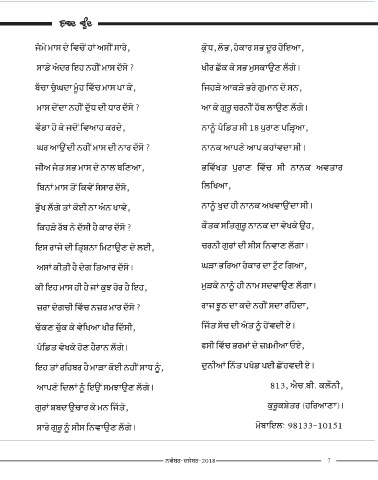 ਸ਼ਬਦ ਬੂੰਦ
ਜੰਮੇ ਮਾਸ ਦੇ ਵਿਚੋਂ ਹਾਂ ਅਸੀਂ ਸਾਰੇ,
ਸਾਡੇ ਅੰਦਰ ਇਹ ਨਹੀਂ ਮਾਸ ਦੱਸੋ ?
ਬੱਚਾ ਚੁੰਘਦਾ ਮੂੰਹ ਵਿੱਚ ਮਾਸ ਪਾ ਕੇ,
ਮਾਸ ਦੇਂਦਾ ਨਹੀਂ ਦੁੱਧ ਦੀ ਧਾਰ ਦੱਸੋ ?
ਵੱਡਾ ਹੋ ਕੇ ਜਦੋਂ ਵਿਆਹ ਕਰਦੇ,
ਘਰ ਆਉਂਦੀ ਨਹੀਂ ਮਾਸ ਦੀ ਨਾਰ ਦੱਸੋ ?
ਜੀਅ ਜੰਤ ਸਭ ਮਾਸ ਦੇ ਨਾਲ ਬਣਿਆ,
ਬਿਨਾਂ ਮਾਸ ਤੋਂ ਕਿਵੇਂ ਸੰਸਾਰ ਦੱਸੋ,
ਭੁੱਖ ਲੱਗੇ ਤਾਂ ਕੋਈ ਨਾ ਅੰਨ ਖਾਵੇ,
ਕਿਹੜੇ ਰੱਬ ਨੇ ਦੱਸੀ ਹੈ ਕਾਰ ਦੱਸੋ ?
ਇਸ ਰਾਜੇ ਦੀ ਤ੍ਰਿਸ਼ਨਾ ਮਿਟਾਉਣ ਦੇ ਲਈ,
ਅਸਾਂ ਕੀਤੀ ਹੈ ਦੇਗ ਤਿਆਰ ਦੱਸੋ।
ਕੀ ਇਹ ਮਾਸ ਹੀ ਹੈ ਜਾਂ ਕੁਝ ਹੋਰ ਹੈ ਇਹ,
ਜ਼ਰਾ ਦੇਗਚੀ ਵਿੱਚ ਨਜ਼ਰ ਮਾਰ ਦੱਸੋ ?
ਢੱਕਣ ਚੁੱਕ ਕੇ ਵੇਖਿਆ ਖੀਰ ਦਿੱਸੀ,
ਪੰਡਿਤ ਵੇਖਕੇ ਹੋਣ ਹੈਰਾਨ ਲੱਗੇ।
ਇਹ ਤਾਂ ਰਹਿਬਰ ਹੈ ਮਾੜਾ ਕੋਈ ਨਹੀਂ ਸਾਧ ਨੂੰ,
ਆਪਣੇ ਦਿਲਾਂ ਨੂੰ ਇਉਂ ਸਮਝਾਉਣ ਲੱਗੇ।
ਗੁਰਾਂ ਸ਼ਬਦ ਉਚਾਰ ਕੇ ਮਨ ਜਿੱਤੇ,
ਸਾਰੇ ਗੁਰੂ ਨੂੰ ਸੀਸ ਨਿਵਾਉਣ ਲੱਗੇ।
ਕ੍ਰੋਧ, ਲੋਭ, ਹੰਕਾਰ ਸਭ ਦੂਰ ਹੋਇਆ,
ਖੀਰ ਛੱਕ ਕੇ ਸਭ ਮੁਸਕਾਉਣ ਲੱਗੇ।
ਜਿਹੜੇ ਆਕੜੇ ਭਰੇ ਗੁਮਾਨ ਦੇ ਸਨ,
ਆ ਕੇ ਗੁਰੂ ਚਰਨੀਂ ਹੱਥ ਲਾਉਣ ਲੱਗੇ।
ਨਾਨੂੰ ਪੰਡਿਤ ਸੀ 18 ਪੁਰਾਣ ਪੜ੍ਹਿਆ,
ਨਾਨਕ ਆਪਣੇ ਆਪ ਕਹਾਂਵਦਾ ਸੀ।
ਭਵਿੱਖਤ ਪੁਰਾਣ ਵਿੱਚ ਸੀ ਨਾਨਕ ਅਵਤਾਰ
ਲਿਖਿਆ,
ਨਾਨੂੰ ਖੁਦ ਹੀ ਨਾਨਕ ਅਖਵਾਉਂਦਾ ਸੀ।
ਕੌਤਕ ਸਤਿਗੁਰੂ ਨਾਨਕ ਦਾ ਵੇਖਕੇ ਉਹ,
ਚਰਨੀ ਗੁਰਾਂ ਦੀ ਸੀਸ ਨਿਵਾਣ ਲੱਗਾ।
ਘੜਾ ਭਰਿਆ ਹੰਕਾਰ ਦਾ ਟੁੱਟ ਗਿਆ,
ਮੁੜਕੇ ਨਾਨੂੰ ਹੀ ਨਾਮ ਸਦਵਾਉਣ ਲੱਗਾ।
ਰਾਜ ਝੂਠ ਦਾ ਕਦੇ ਨਹੀਂ ਸਦਾ ਰਹਿੰਦਾ,
ਜਿੱਤ ਸੱਚ ਦੀ ਅੰਤ ਨੂੰ ਹੋਂਵਦੀ ਏ।
ਫਸੀ ਵਿੱਚ ਭਰਮਾਂ ਦੇ ਜ਼ਖ਼ਮੀਆ ਓਏ,
ਦੁਨੀਆਂ ਨਿੱਤ ਪਖੰਡ ਪਈ ਛੋਂਹਵਦੀ ਏ।
813, ਐਚ.ਬੀ. ਕਲੌਨੀ,
ਕੁਰੂਕਸ਼ੇਤਰ (ਹਰਿਆਣਾ)।
ਮੋਬਾਇਲ: 98133-10151
ਨਵੰਬਰ-ਦਸੰਬਰ-2018
7